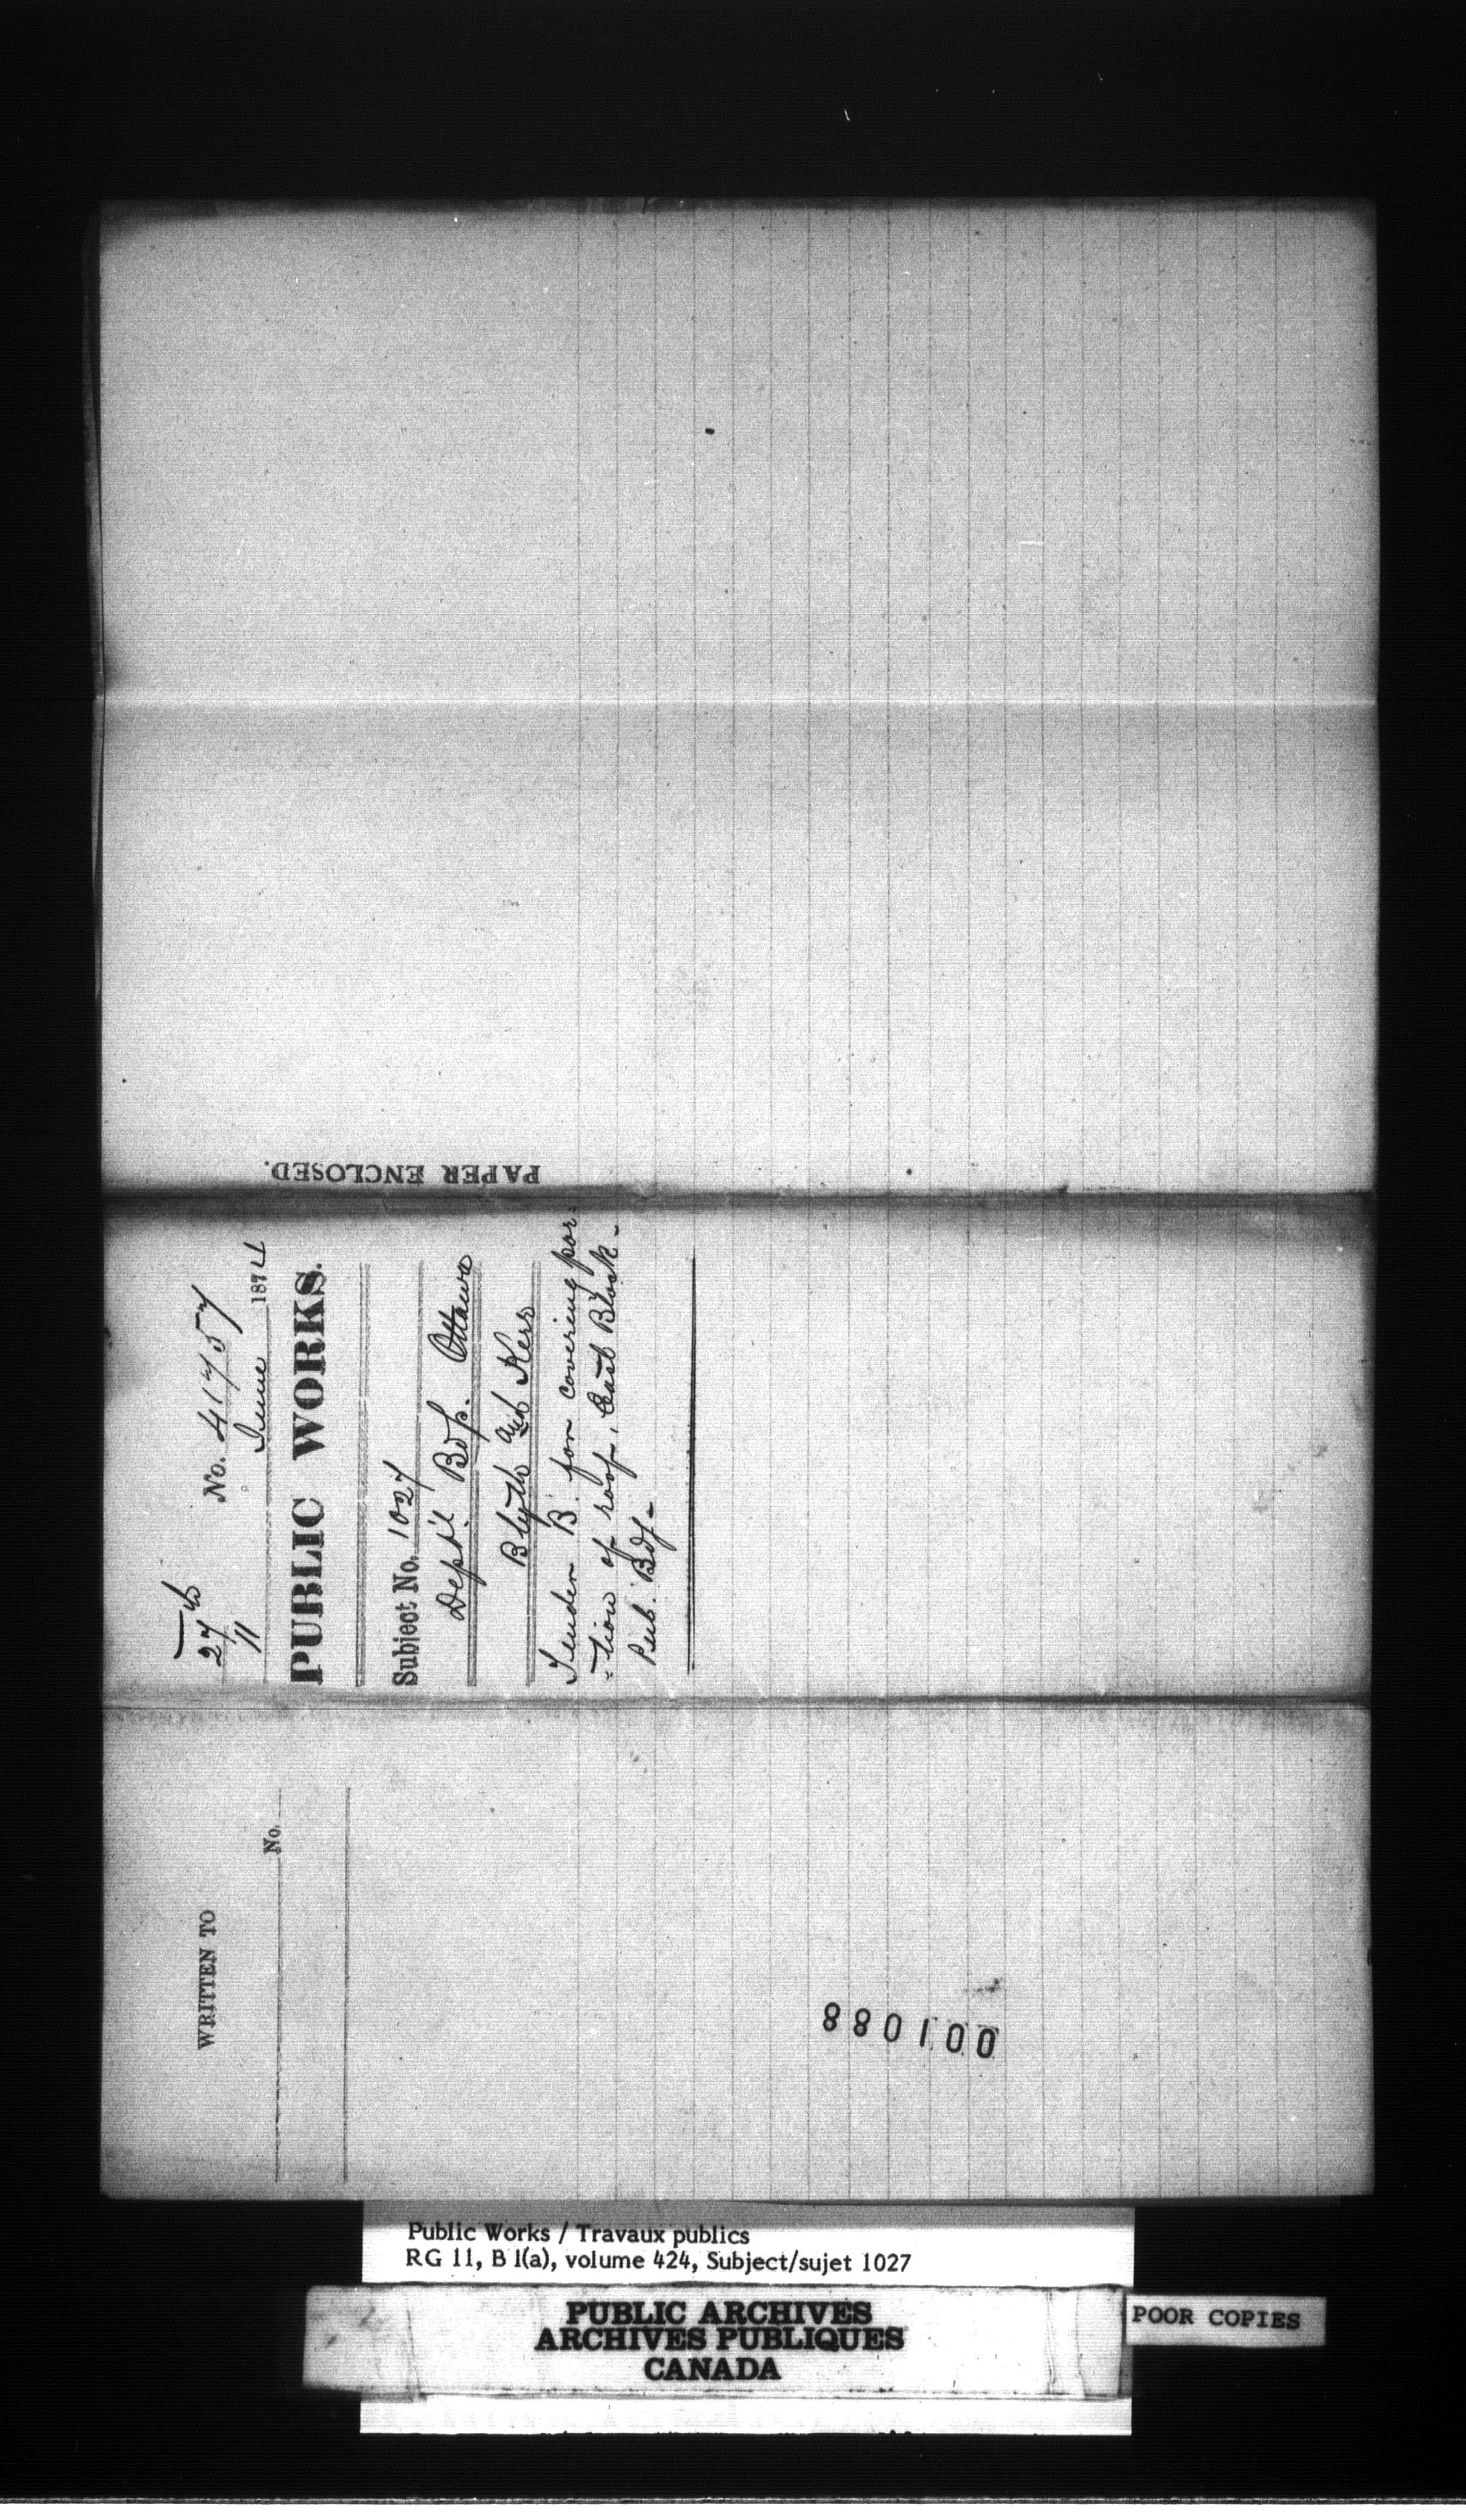 PAPER ENCLOSED.
27th
No. 41757
11 June 1874
PUBLIC WORKS.
Subject No. 1027
Dept'l Bdgs. Ottawa
Blyth and Kerr
Tender B. for covering por-
-tion of roof, East Block-
Pub. Bdg-
WRITTEN TO
No.
001088
Public Works / Travaux publics
RG 11, B 1(a), volume 424, Subject/sujet 1027
PUBLIC ARCHIVES
ARCHIVES PUBLIQUES
CANADA
POOR COPIES